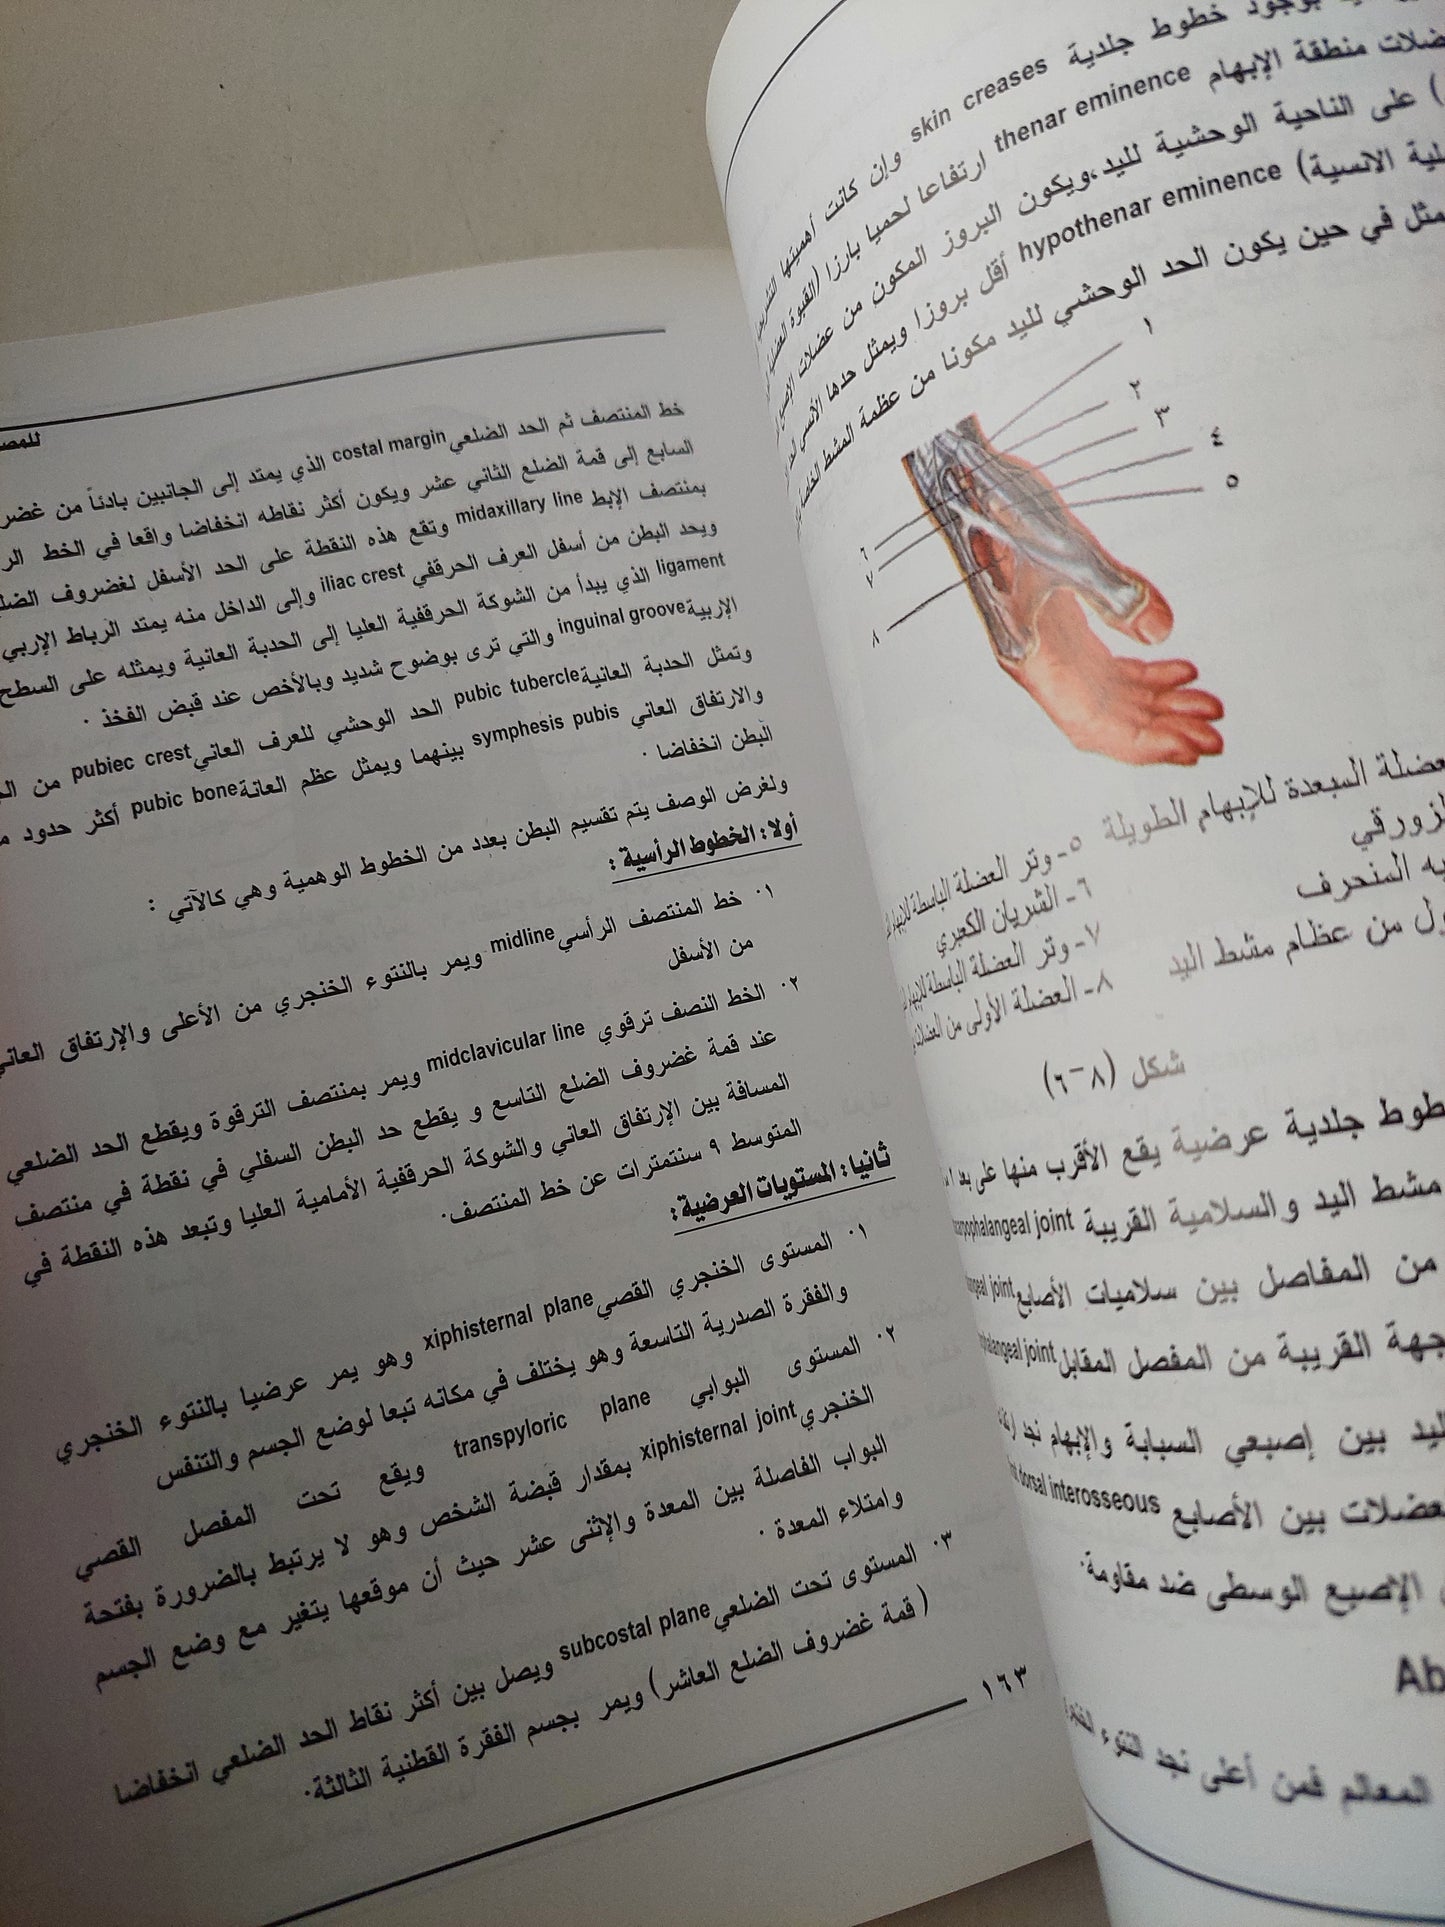 بوجود خطوط جلدية skin creases وإن كانت أهميتها
منطقة الإبهام thenar eminence ارتفاعا لحميا بارزا (القبوة العضلية
) على الناحية الوحشية لليد،ويكون البروز المكون من عضلات
الانسية) hypothenar eminence أقل بروزا ويمثل حدها الأنسي
في حين يكون الحد الوحشي لليد مكونا من عظمة المشط
١
٢
٣
٤
٥
٦
٧
٨
العضلة السبعدة للإبهام الطويلة
الزورقي
المنحرف
من عظام مشط اليد
٥- وتر العضلة الباسطة للإبهام
٦- الشريان الكعبري
٧- وتر العضلة الباسطة للإبهام
٨- العضلة الأولى من العضلات
شكل (٨-٦)
خطوط جلدية عرضية يقع الأقرب منها على بعد
مشط اليد والسلامية القريبة joint
من المفاصل بين سلاميات الأصابع joint
القريبة من المفصل المقابل joint
اليد بين إصبعي السبابة والإبهام نجد
العضلات بين الأصابع dorsal interosseous
الإصبع الوسطى ضد مقاومة.
Ab
المعالم فمن أعلى نجد النتوء
خط المنتصف ثم الحد الضلعي costal margin الذي يمتد إلى الجانبين بادئاً من
السابع إلى قمة الضلع الثاني عشر ويكون أكثر نقاطه انخفاضا واقعا في الخط
بمنتصف الإبط midaxillary line وتقع هذه النقطة على الحد الأسفل لغضروف
ويحد البطن من أسفل العرف الحرقفي iliac crest وإلى الداخل منه يمتد الرباط الإربي
ligament الذي يبدأ من الشوكة الحرقفية العليا إلى الحدبة العانية ويمثله على السطح
الإربية inguinal groove والتي ترى بوضوح شديد وبالأخص عند قبض الفخذ .
وتمثل الحدبة العانية pubic tubercle الحد الوحشي للعرف العاني pubiec crest من
والارتفاق العاني symphesis pubis بينهما ويمثل عظم العانة pubic bone أكثر حدود
البطن انخفاضا .
ولغرض الوصف يتم تقسيم البطن بعدد من الخطوط الوهمية وهي كالآتي :
أولا: الخطوط الرأسية :
١. خط المنتصف الرأسي midline ويمر بالنتوء الخنجري من الأعلى والإرتفاق العاني
من الأسفل
٢. الخط النصف ترقوي midclavicular line ويمر بمنتصف الترقوة ويقطع الحد الضلعي
عند قمة غضروف الضلع التاسع و يقطع حد البطن السفلي في نقطة في منتصف
المسافة بين الإرتفاق العاني والشوكة الحرقفية الأمامية العليا وتبعد هذه النقطة في
المتوسط ٩ سنتمترات عن خط المنتصف.
ثانيا: المستويات العرضية :
١. المستوى الخنجري القصي xiphisternal plane وهو يمر عرضيا بالنتوء الخنجري
والفقرة الصدرية التاسعة وهو يختلف في مكانه تبعا لوضع الجسم والتنفس
٢. المستوى البوابي transpyloric plane ويقع تحت المفصل القصي
الخنجري xiphisternal joint بمقدار قبضة الشخص وهو لا يرتبط بالضرورة بفتحة
البواب الفاصلة بين المعدة والإثنى عشر حيث أن موقعها يتغير مع وضع الجسم
وامتلاء المعدة .
٣. المستوى تحت الضلعي subcostal plane ويصل بين أكثر نقاط الحد الضلعي انخفاضا
( قمة غضروف الضلع العاشر) ويمر بجسم الفقرة القطنية الثالثة.
١٦٣